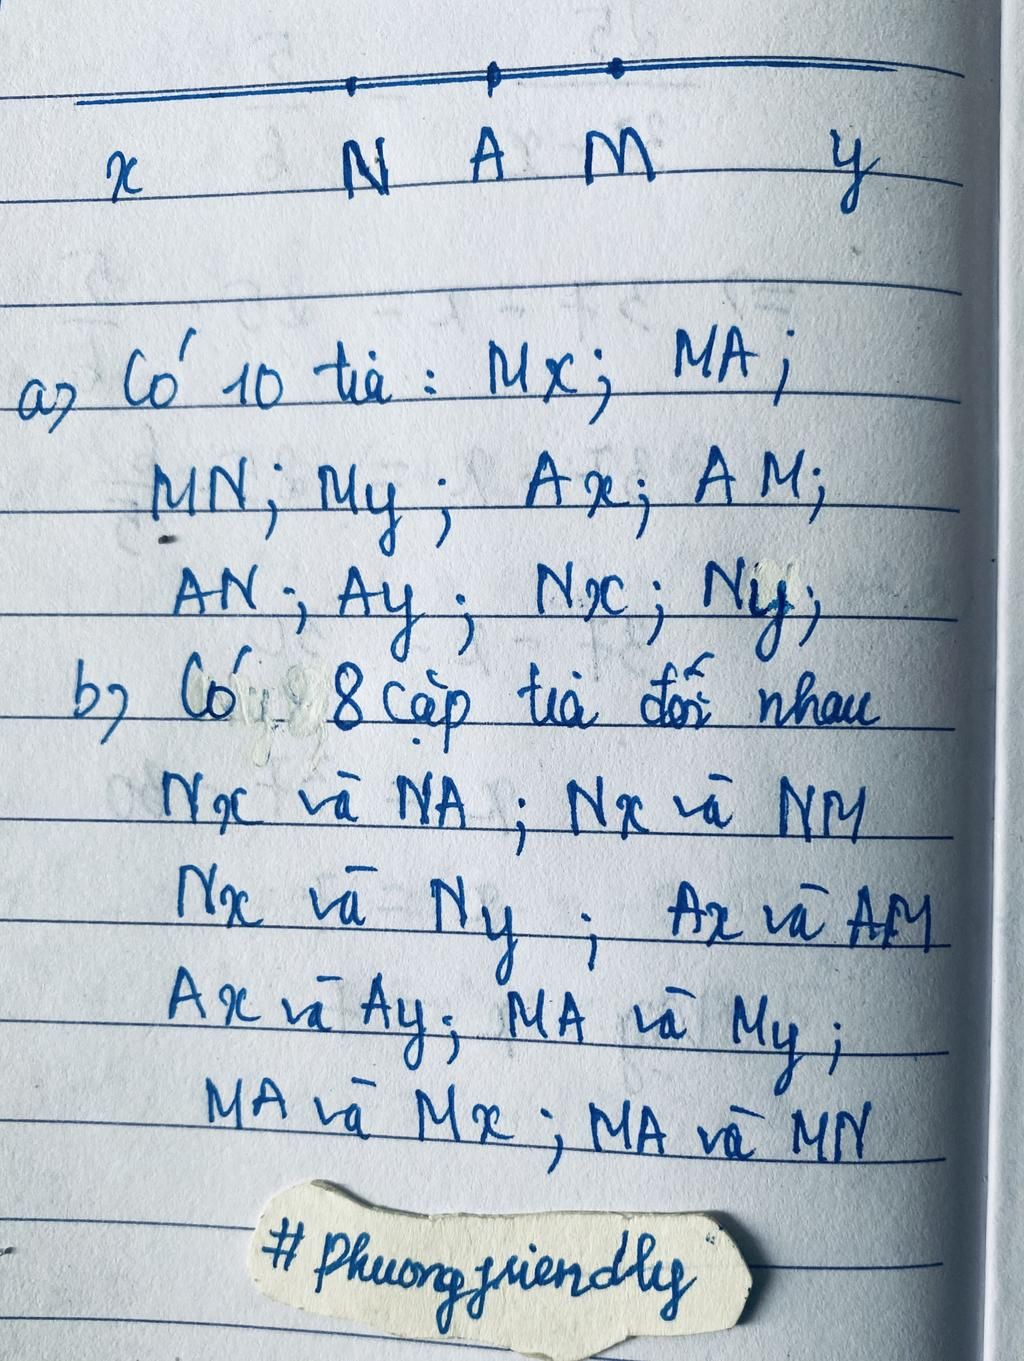 x N A M y
a) Có 10 tia : Mx; MA;
MN; My; Ax; AM;
AN; Ay; Nx; Ny;
b) Có 8 cặp tia đối nhau
Nx và NA ; Nx và NM
Nx và Ny ; Ax và AM
Ax và Ay; MA và My;
MA và Mx ; MA và MN
#phuongfriendly